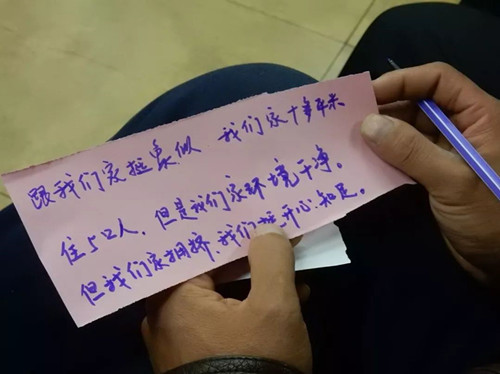 跟我们家挺象似 我们家十多平米
住5口人,但是我们家环境干净。
但我们家拥挤,我们挺开心,知足。